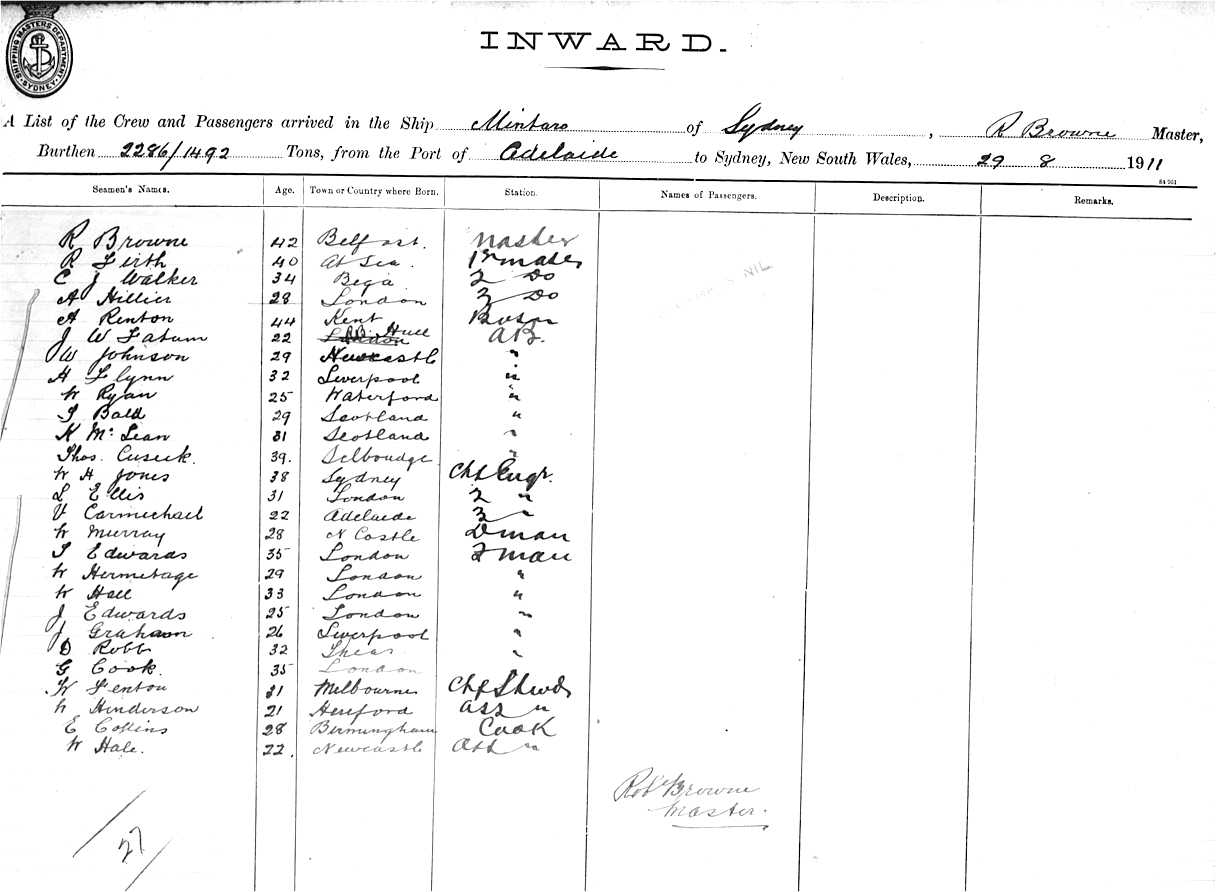 SHIPPING MASTERS DEPARTMENT SYDNEY
INWARD.
A List of the Crew and Passengers arrived in the Ship Mintaro of Sydney, R Browne Master,
Burthen 2286/1492 Tons, from the Port of Adelaide to Sydney, New South Wales, 29 8 1911
Seamen's Names. Age. Town or Country where Born. Station. Names of Passengers. Description. Remarks.
R Browne 42 Belfast. Master
R Firth 40 At Sea. 1st mate
C J Walker 34 Bega 2 Do
NIL
A Hillier 28 London 3 Do
A Renton 44 Kent Bosn
J W Fatum 22 Hull AB.
W Johnson 29 Newcastle "
H Flynn 32 Liverpool "
W Ryan 25 Waterford "
J Bald 29 Scotland "
K McLean 31 Scotland "
Thos. Cusick. 39. "
W H Jones 38 Sydney Chf Engr.
L Ellis 31 London 2 "
V Carmichael 22 Adelaide 3 "
W Murray 28 N Castle Dman
S Edwards 35 London Fman
W Hermitage 29 London "
W Hall 33 London "
J Edwards 25 London "
J Graham 26 Liverpool "
D Robb 32 "
G Cook. 35 London
W Fenton 31 Melbourne Chf Stwd
W Henderson 21 Hereford Ass "
E Collins 28 Birmingham Cook
W Hale. 22. Newcastle Ass "
Robt Browne
Master.
27